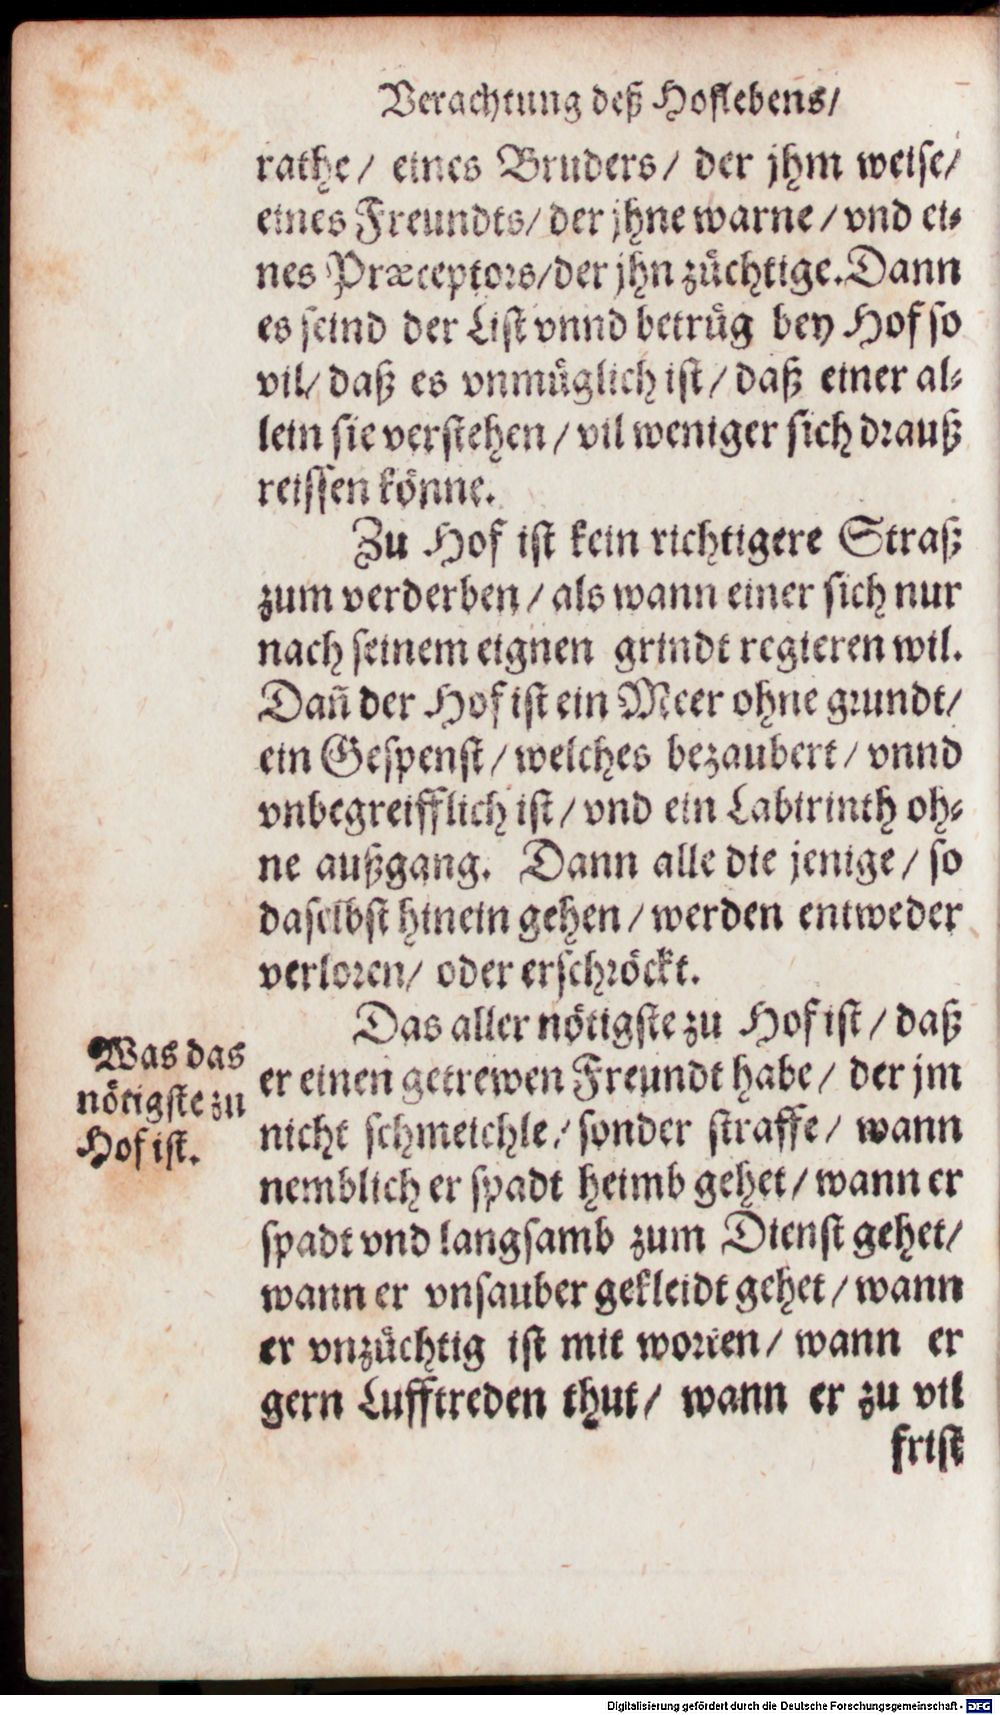 Verachtung deß Hoflebens/
rathe/ eines Bruders/ der jhm weise/
eines Freundts/ der jhne warne/ vnd ei-
nes Præceptors/ der jhn züchtige. Dann
es seind der List vnnd betrüg bey Hof so
vil/ daß es vnmüglich ist/ daß einer al-
lein sie verstehen/ vil weniger sich drauß
reissen könne.
Zu Hof ist kein richtigere Straß
zum verderben/ als wann einer sich nur
nach seinem eignen grindt regieren wil.
Dañ der Hof ist ein Meer ohne grundt/
ein Gespenst/ welches bezaubert/ vnnd
vnbegreifflich ist/ vnd ein Labirinth oh-
ne außgang. Dann alle die jenige/ so
daselbst hinein gehen/ werden entweder
verloren/ oder erschröckt.
Das aller nötigste zu Hof ist/ daß
er einen getrewen Freundt habe/ der jm
nicht schmeichle/ sonder straffe/ wann
nemblich er spadt heimb gehet/ wann er
spadt vnd langsamb zum Dienst gehet/
wann er vnsauber gekleidt gehet/ wann
er vnzüchtig ist mit worten/ wann er
gern Lufftreden thut/ wann er zu vil
frist
Was das
nötigste zu
Hof ist.
Digitalisierung gefördert durch die Deutsche Forschungsgemeinschaft - DFG